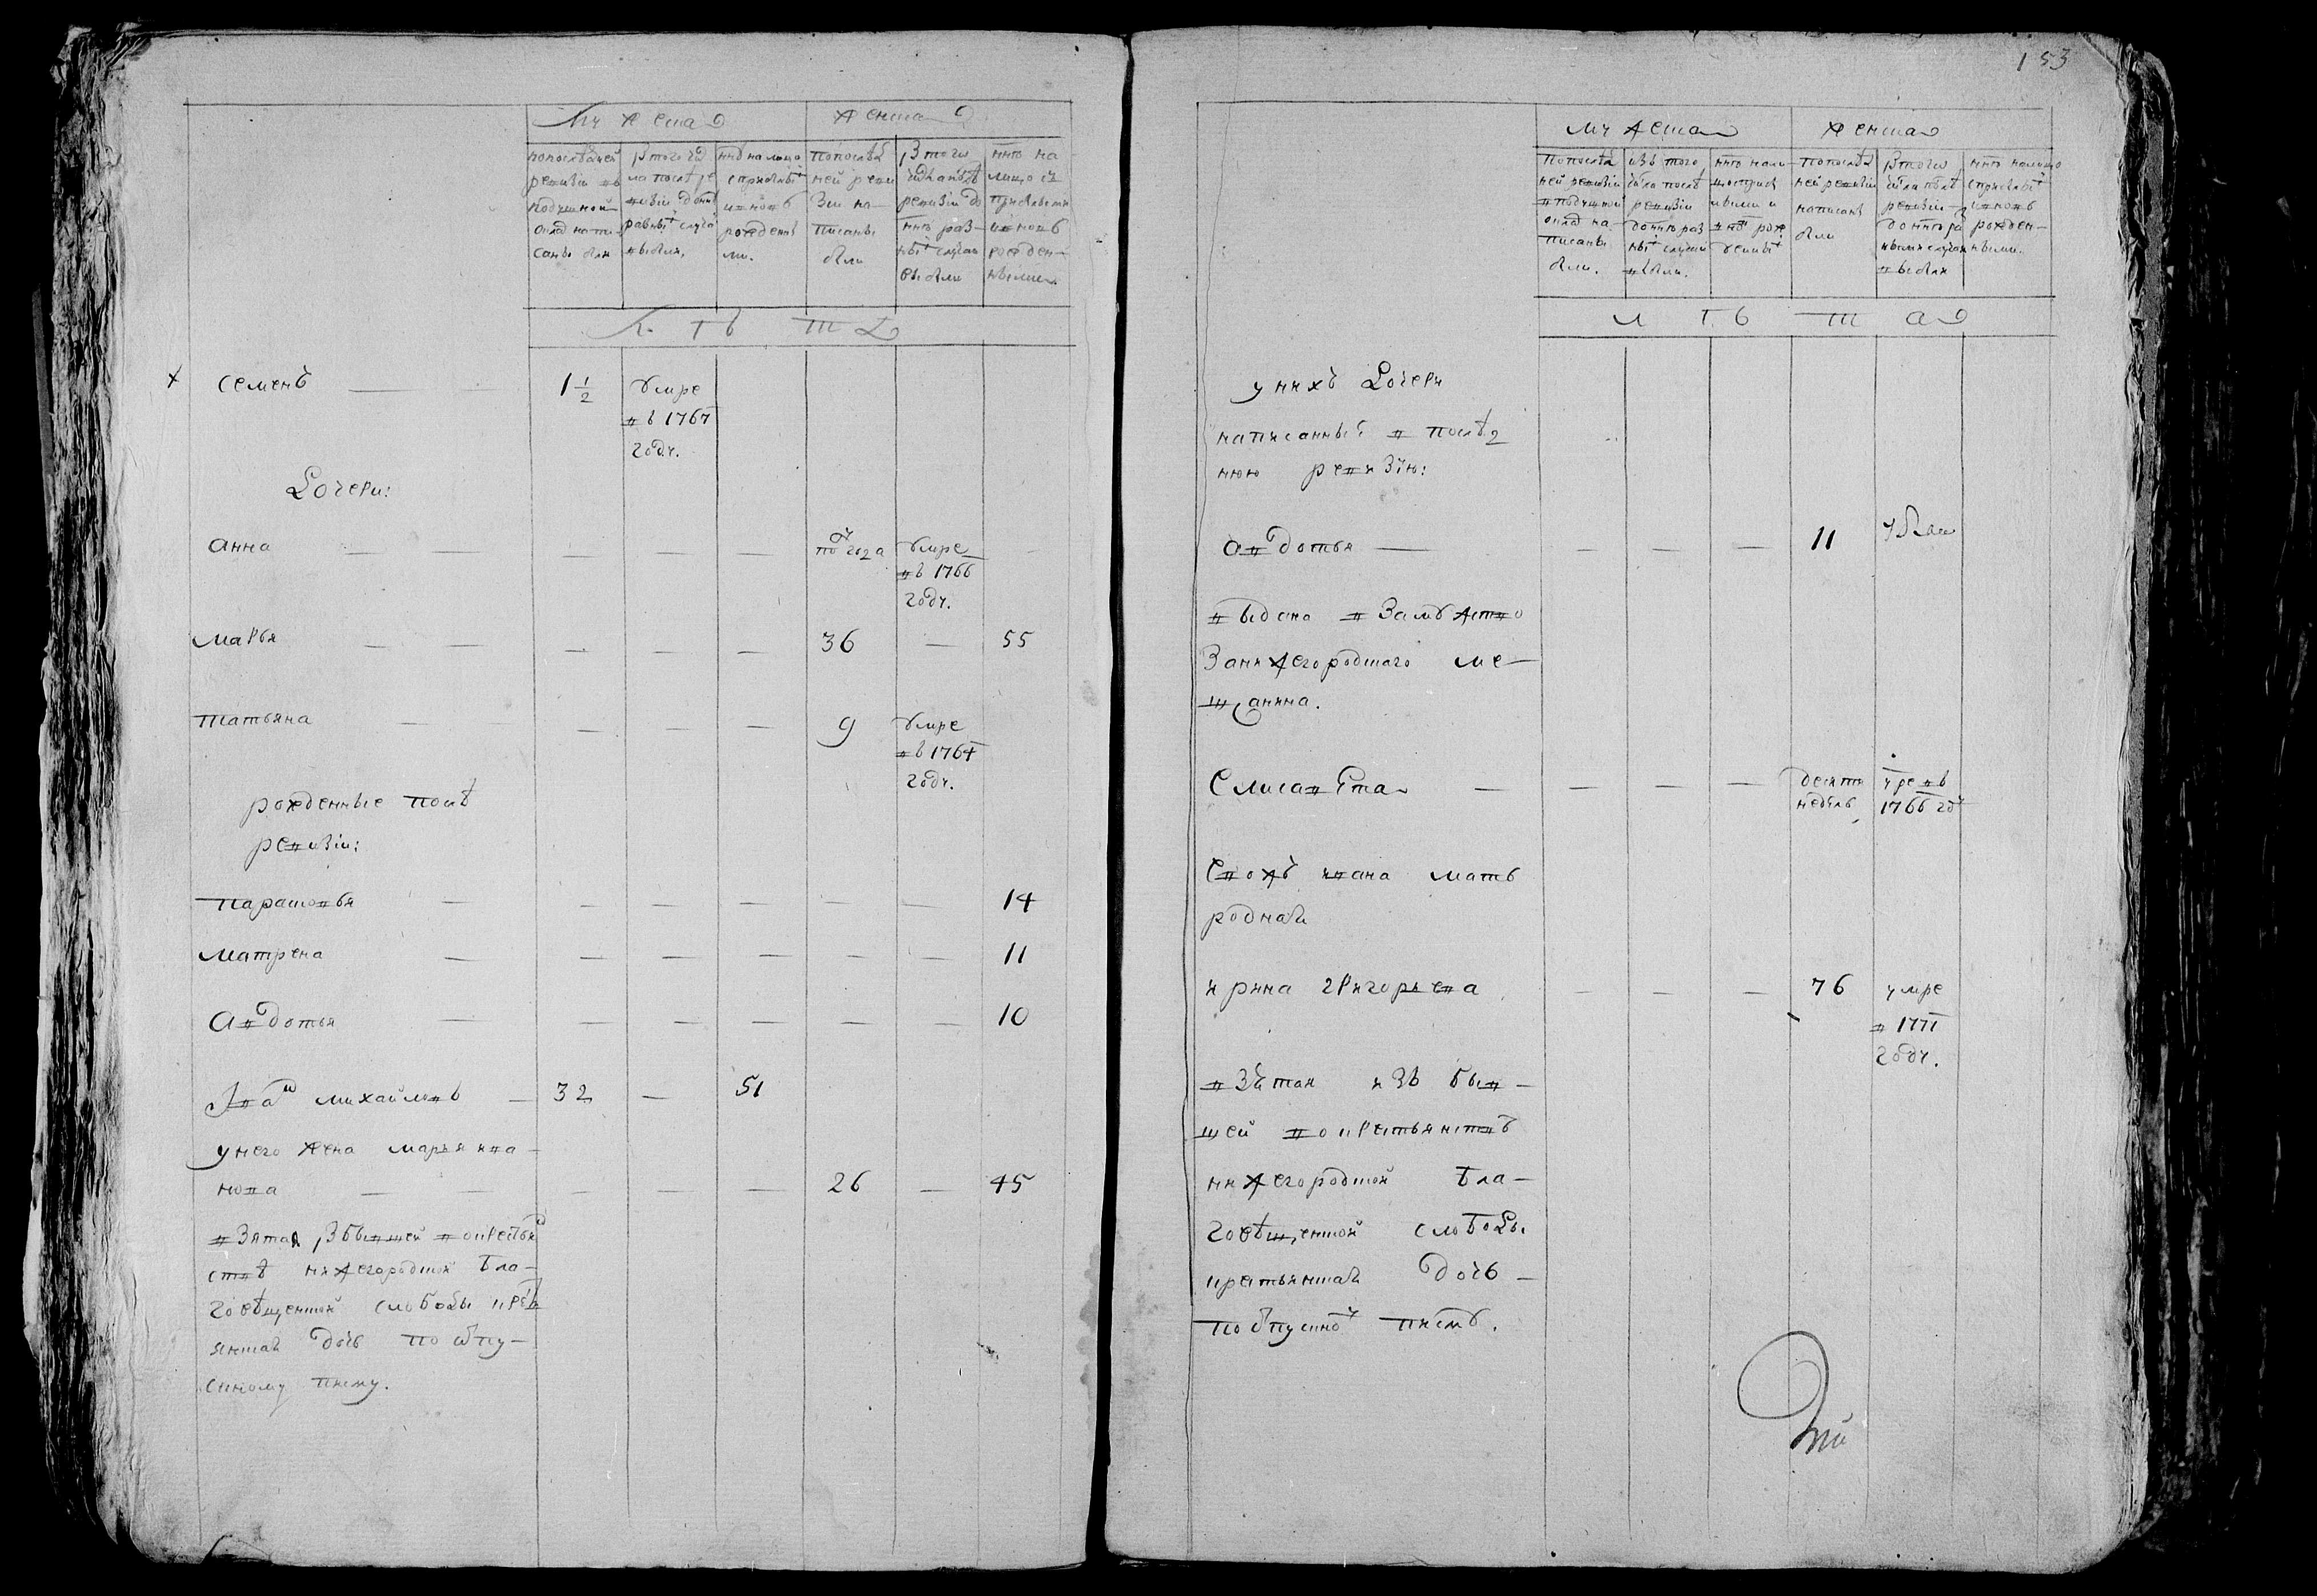 153
Мужеска
Женска
попоследней ревизіи въ подушной оклад написаны были
изтого числа после ревизіи до ныне разных случаев выбыли,
ныне налицо с прибылыми и вновь рожденными.
попоследней ревизіи написаны были
изтого числа после ревизіи до ныне разных случаи выбыли
ныне налицо с прибылыми и вновь рожденными.
Л Ѣ Т А
Семенъ — 1 1/2 умре
въ 1767
году.
Дочери:
Анна — — — — по год а умре
въ 1766
году.
Марья — — — — — 36 — 55
Татьяна — — — — 9 умре
въ 1764
году.
рожденные после
ревизіи:
парасковья — — — — — — 14
матрена — — — — — — 11
Авдотья — — — — — — 10
Иван михайловъ — 32 — 51
у него жена марья ива-
нова — — — — — 26 — 45
взятая из бывшей вотчине
нижегородской бла-
говѣщенской слободы крест
янская дочь по отпу-
скному писму.
Мужеска
Женска
попоследней ревизіи в подушной оклад написаны были.
изъ того числа после ревизіи до ныне разных случаи выбыли.
ныне налицо с прибылыми и вновь рожденных
попоследней ревизіи написаны были
изтого числа после ревизіи до ныне разными случаи выбыли
ныне налицо с прибылыми и вновь рожденными.
Л Ѣ Т А
у нихъ Дочери
написанные в послед
нюю ревизію:
авдотья — — — — 11
выдана в замужство
за нижегородцкого ме-
щанина.
Елисавета — — — — десять недель умре въ 1766 году
Евожъ ивана мать
родная
ирина григорьева — — — 76 умре
в 1771
году.
взятая изъ быв-
шей
нижегородской бла-
говѣщенской слободы
крестьянская дочь —
по отпускному писму.